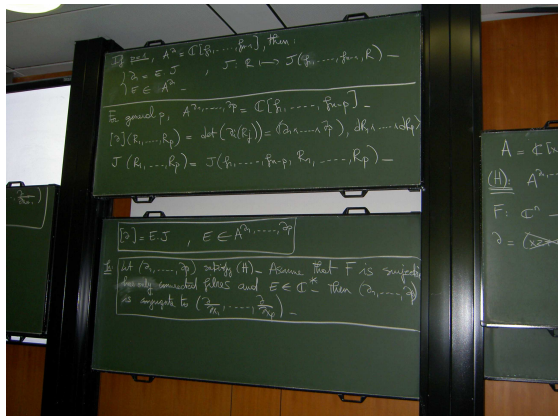 If p=1, A^∂ = ℂ[f₁,....,fₙ₋₁], then:
∂ = E.J , J: R ↦ J(f₁,....,fₙ₋₁,R) –
E ∈ A^∂ –
For general p, A^{∂₁,....,∂p} = ℂ[f₁,....,fₙ₋p] –
[∂](R₁,....,Rp) = det(∂ᵢ(Rⱼ)) = ⟨∂₁∧....∧∂p, dR₁∧....∧dRp⟩
J(R₁,....,Rp) = J(f₁,....,fₙ₋p, R₁,....,Rp) –
[∂] = E.J , E ∈ A^{∂₁,....,∂p}
Let (∂₁,....,∂p) satisfy (H) – Assume that F is surjecti
only connected fibres and E ∈ ℂ* – Then (∂₁,....,∂p)
is conjugate to (∂/∂x₁,....,∂/∂xp) –
A = ℂ[x
(H): A^{∂₁,..
F: ℂⁿ
∂ = (